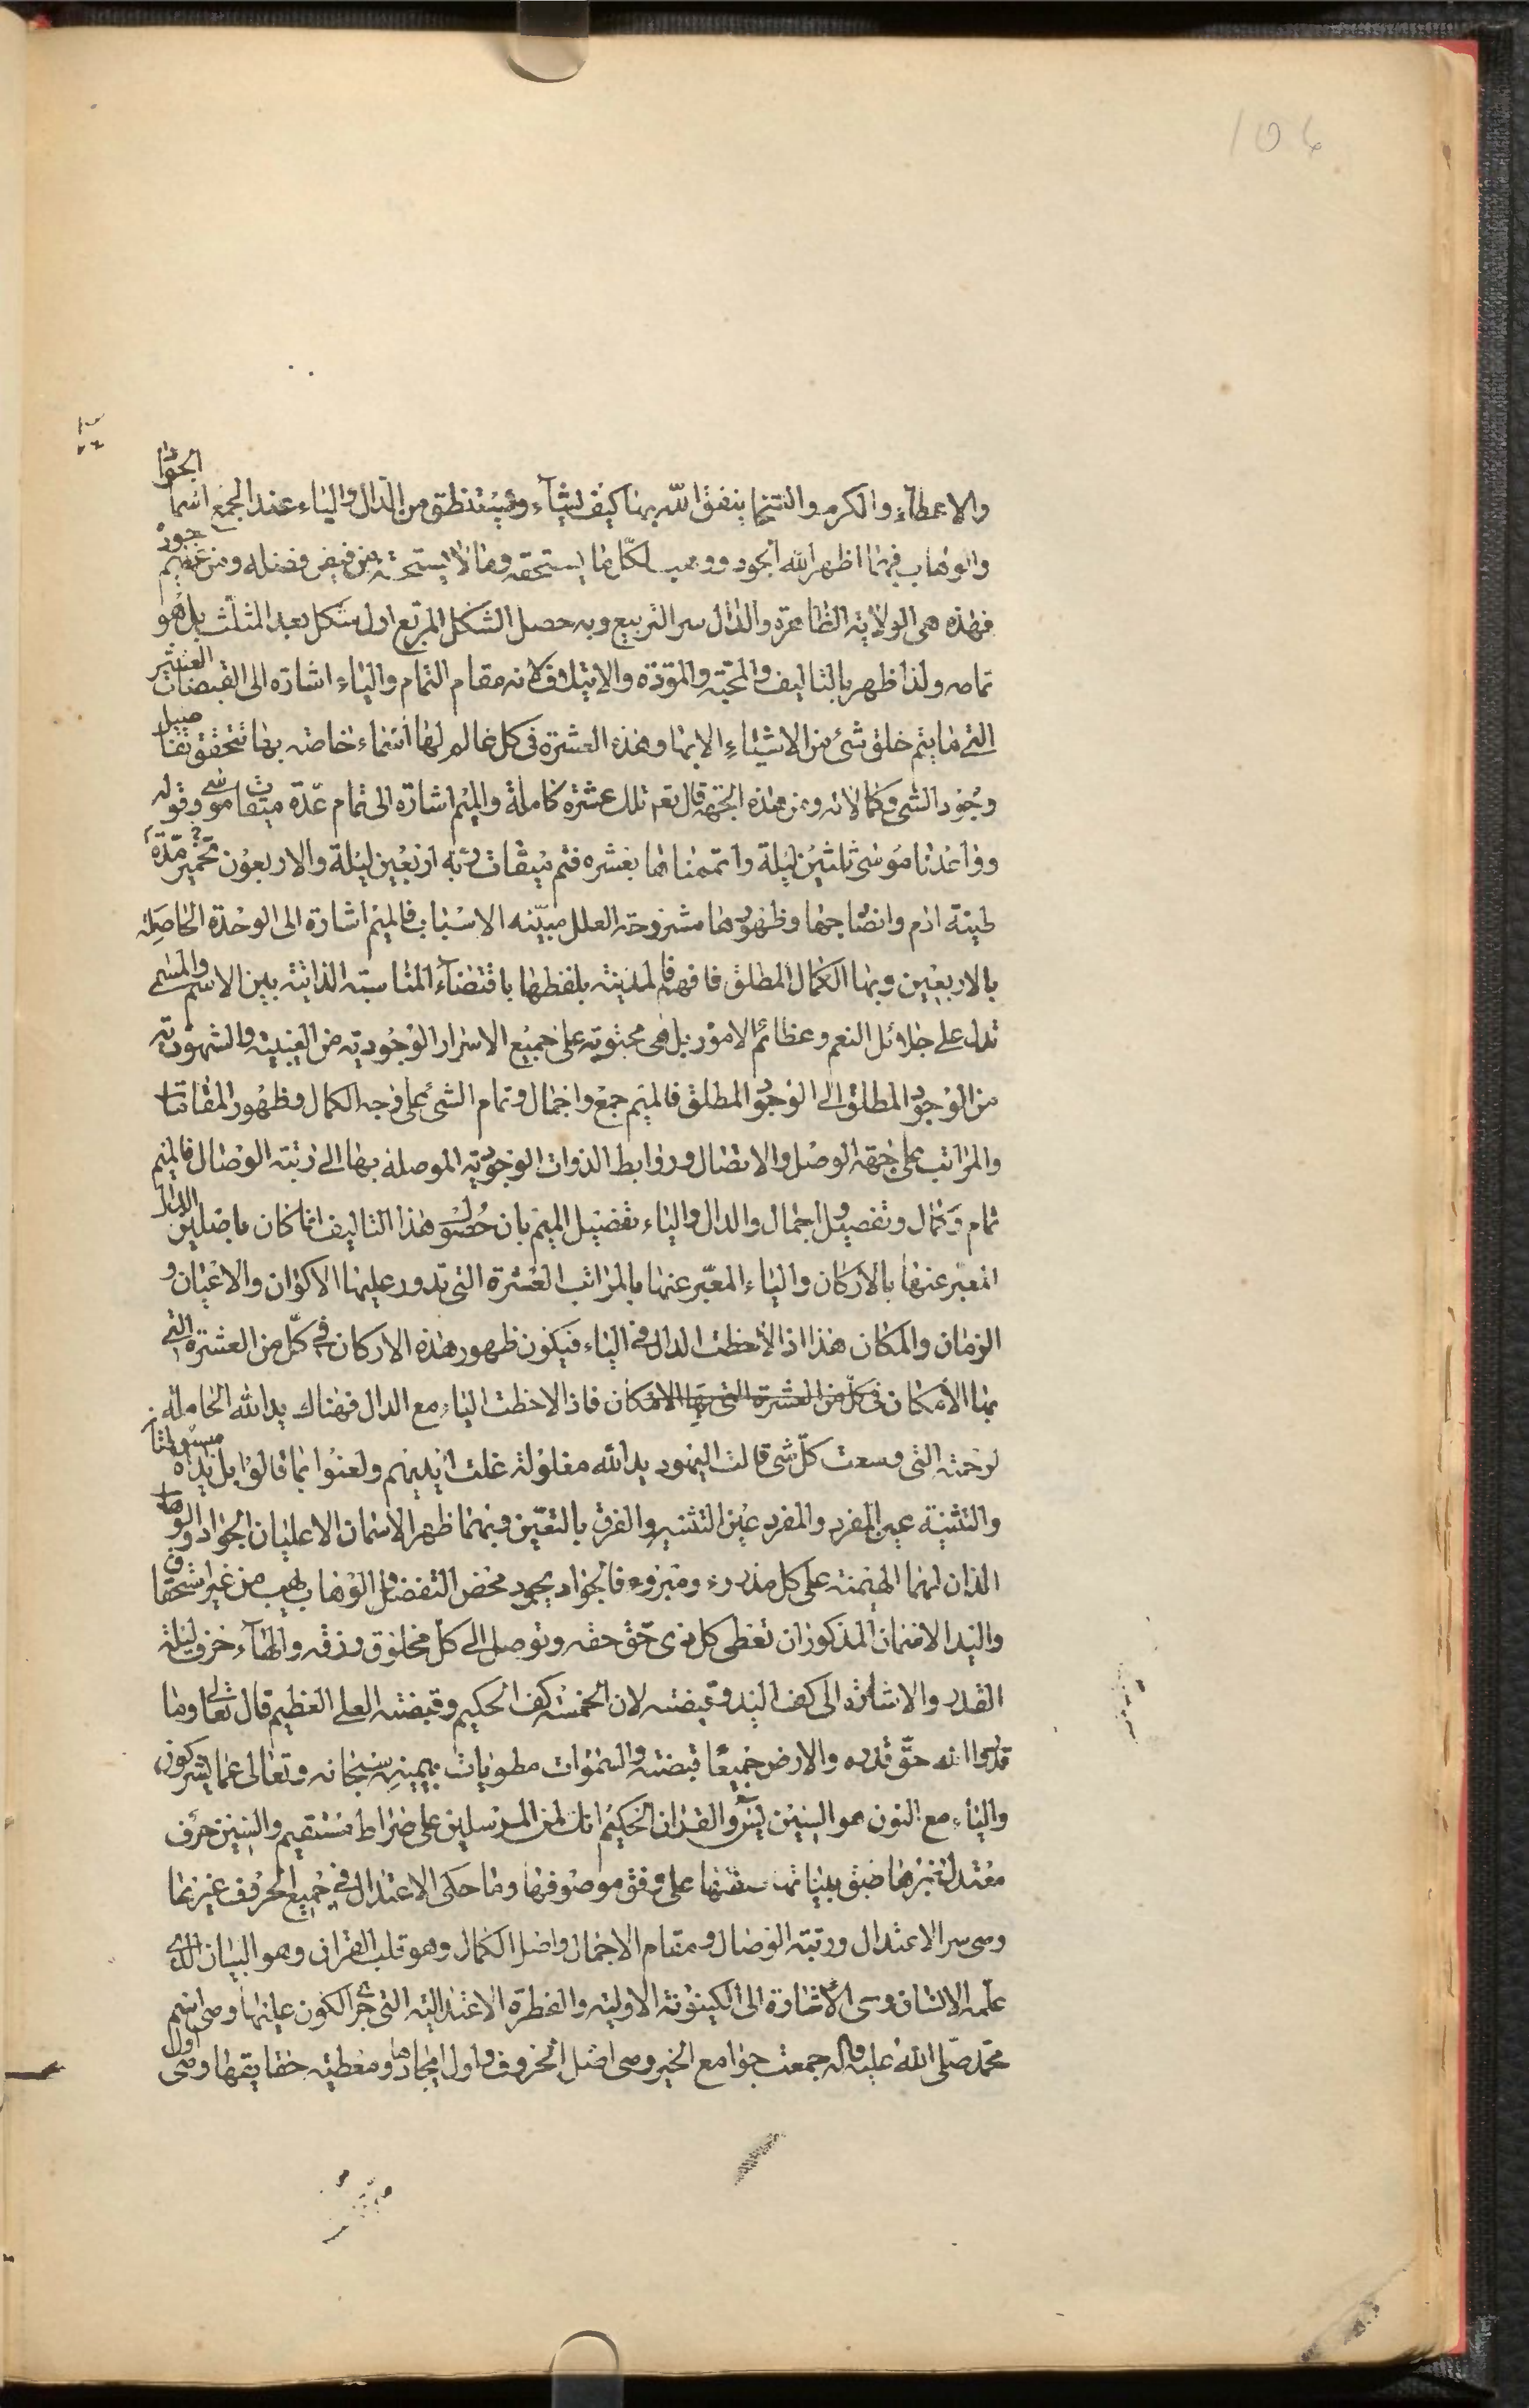 106
والاعطاء والكرم والسخا ينفق الله بها كيف يشآء ويستنطق من الدال والياء عند الجمع اسما الجواد
والوهاب فبهما اظهر الله الجود ووهب لكل ما يستحقه وما لا يستحقه من فيض فضله ومن عظيم جوده
فهذه هى الولاية الظاهرة والدال سر التربيع وبه حصل الشكل المربع اول شكل بعد المثلث بل هو
تمامه ولذا ظهر بالتاليف والمحبّة والمودّة والايتلاف لانه مقام التمام والياء اشارة الى القبضات العشر
التي ما يتم خلق شئ من الاشياء الا بها وهذه العشرة فى كل عالم لها اسماء خاصة بها تتحقق تفاصيل
وجود الشى وكمالاته ومن هذه الجهة قال تعم تلك عشرة كاملة والميم اشارة الى تمام عدّة ميقات موسى وقوله
وواعدنا موسى ثلثين ليلة واتممناها بعشره فتم ميقات ربّه اربعين ليلة والاربعون مدّة تخمير
طينة ادم وانضاجها وظهورها مشروحة العلل مبيّنه الاسباب فالميم اشارة الى الوحدة الحاصله
بالاربعين وبها الكمال المطلق فافهم فالمدينة بلفظها باقتضآء المناسبة الذاتية بين الاسم والمسمى
تدل على جلائل النعم وعظائم الامور بل هى محتوية على جميع الاسرار الوجودية من الغيبية والشهودية
من الوجود المطلق الى الوجود المطلق فالميم جمع واجمال وتمام الشئ على وجه الكمال وظهور المقامات
والمراتب على جهة الوصل والاتصال وروابط الذوات الوجودية الموصلة بها الى رتبة الوصال فالميم
تمام وكمال وتفصيل واجمال والدال والياء تفضيل الميم بان حصول هذا التاليف انما كان باصلين الدال
المعبر عنها بالاركان والياء المعبّر عنها بالمراتب العشرة التى تدور عليها الاكوان والاعيان و
الزمان والمكان هذا اذا لاحظت الدال فى الياء فيكون ظهور هذه الاركان في كلّ من العشرة التى
بها الامكان فى كل من العشرة التى بها الامكان فاذا لاحظت الياء مع الدال فهناك يد الله الحاملة
لرحمته التى وسعت كلّ شى قالت اليهود يد الله مغلولة غلت ايديهم ولعنوا بما قالوا بل يداه مبسوطتان
والتثنية عين المفرد والمفرد عين التثنيه والفرق بالتعيّن وبهما ظهر الاسمان الاعليان الجواد والوهاب
الذان لهما الهيمنة على كل مذروء ومبروء فالجواد يجود محض التفضل والوهاب يهب من غير استحقاق
واليد الاسمان المذكوران تعطى كل ذى حقّ حقه وتوصل الى كل مخلوق رزقه والهآء حرف ليلة
القدر والاشارة الى كف اليد وقبضته لان الخمسة كف الحكيم وقبضة العلى العظيم قال تعالى وما
قدروا الله حقّ قدره والارض جميعًا قبضته والسّموات مطويات بيمينه سبحانه وتعالى عما يشركون
والياء مع النون هو السين يسٓ والقران الحكيم انك لمن المرسلين على صراط مستقيم والسين حرف
معتدلة زبرها طبق بيناتها على وفق موصوفها وما حكى الاعتدال في جميع الحروف غيرها
وهى سر الاعتدال ورتبة الوصال ومقام الاجمال واصل الكمال وهو قلب القران وهو البيان الذى
علّمه الانسان وهى الاشارة الى الكينونة الاولية والفطرة الاعتدالية التى جرى الكون عليها وهى اسم
محمّد صلّى الله عليه واله جمعت جوامع الخير وهى اصل الحروف واول ايجادها ومعطية حقايقها وهى اول